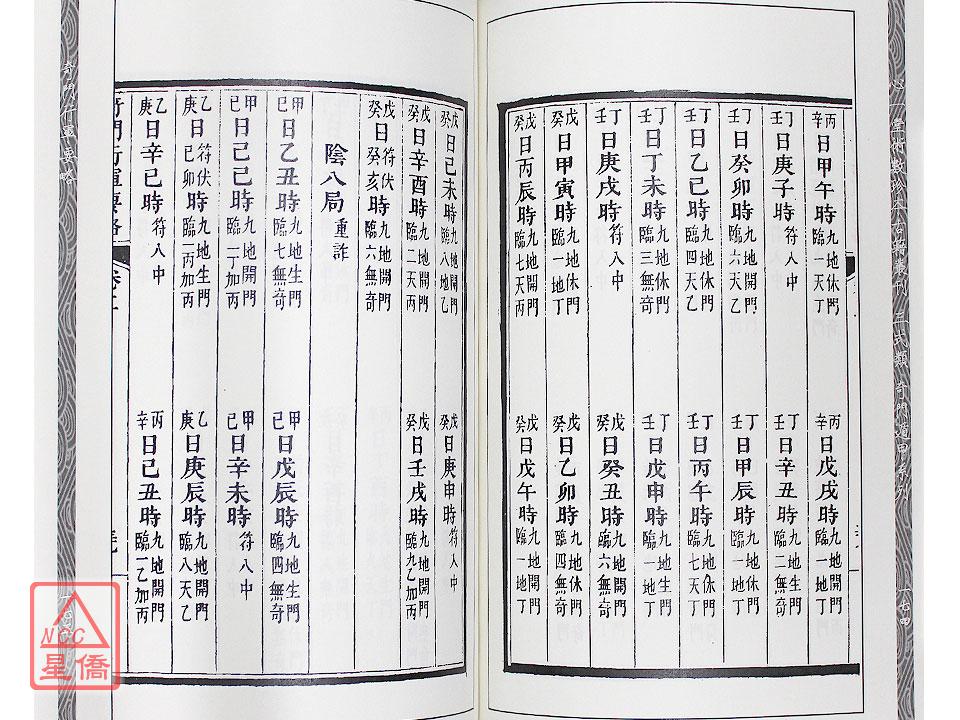 心一堂術數珍本古籍叢刊 三式類 奇門遁甲系列
一七四
丙辛日甲午時九地休門臨一天丁 丙辛日戊戌時九地開門臨一地丁
丁壬日庚子時符入中 丁壬日辛丑時九地開門臨二無奇
丁壬日癸卯時九地休門臨六天乙 丁壬日甲辰時九地休門臨一地丁
丁壬日乙巳時九地休門臨四天乙 丁壬日丙午時九地休門臨七天丁
丁壬日丁未時九地休門臨三無奇 丁壬日戊申時九地開門臨一地丁
丁壬日庚戌時符入中 戊癸日癸丑時九地開門臨六無奇
戊癸日甲寅時九地休門臨一地丁 戊癸日乙卯時九地休門臨四無奇
戊癸日丙辰時九地開門臨七天丙 戊癸日戊午時九地開門臨一地丁
戊癸日己未時九地開門臨八地乙 戊癸日庚申時符入中
戊癸日辛酉時九地開門臨二天丙 戊癸日壬戌時九地開門臨九乙加丙
戊癸日符伏癸亥時九地開門臨六無奇
陰八局重詐
甲己日乙丑時九地生門臨七無奇 甲己日戊辰時九地生門臨四無奇
甲己日己巳時九地開門臨一丁加丙 甲己日辛未時符入中
乙庚日符伏己卯時九地生門臨一丙加丙 乙庚日庚辰時九地開門臨八天乙
乙庚日辛巳時符入中 丙辛日己丑時九地開門臨一乙加丙
奇門行軍要略 卷二
奇門行軍要略
NCC
星僑